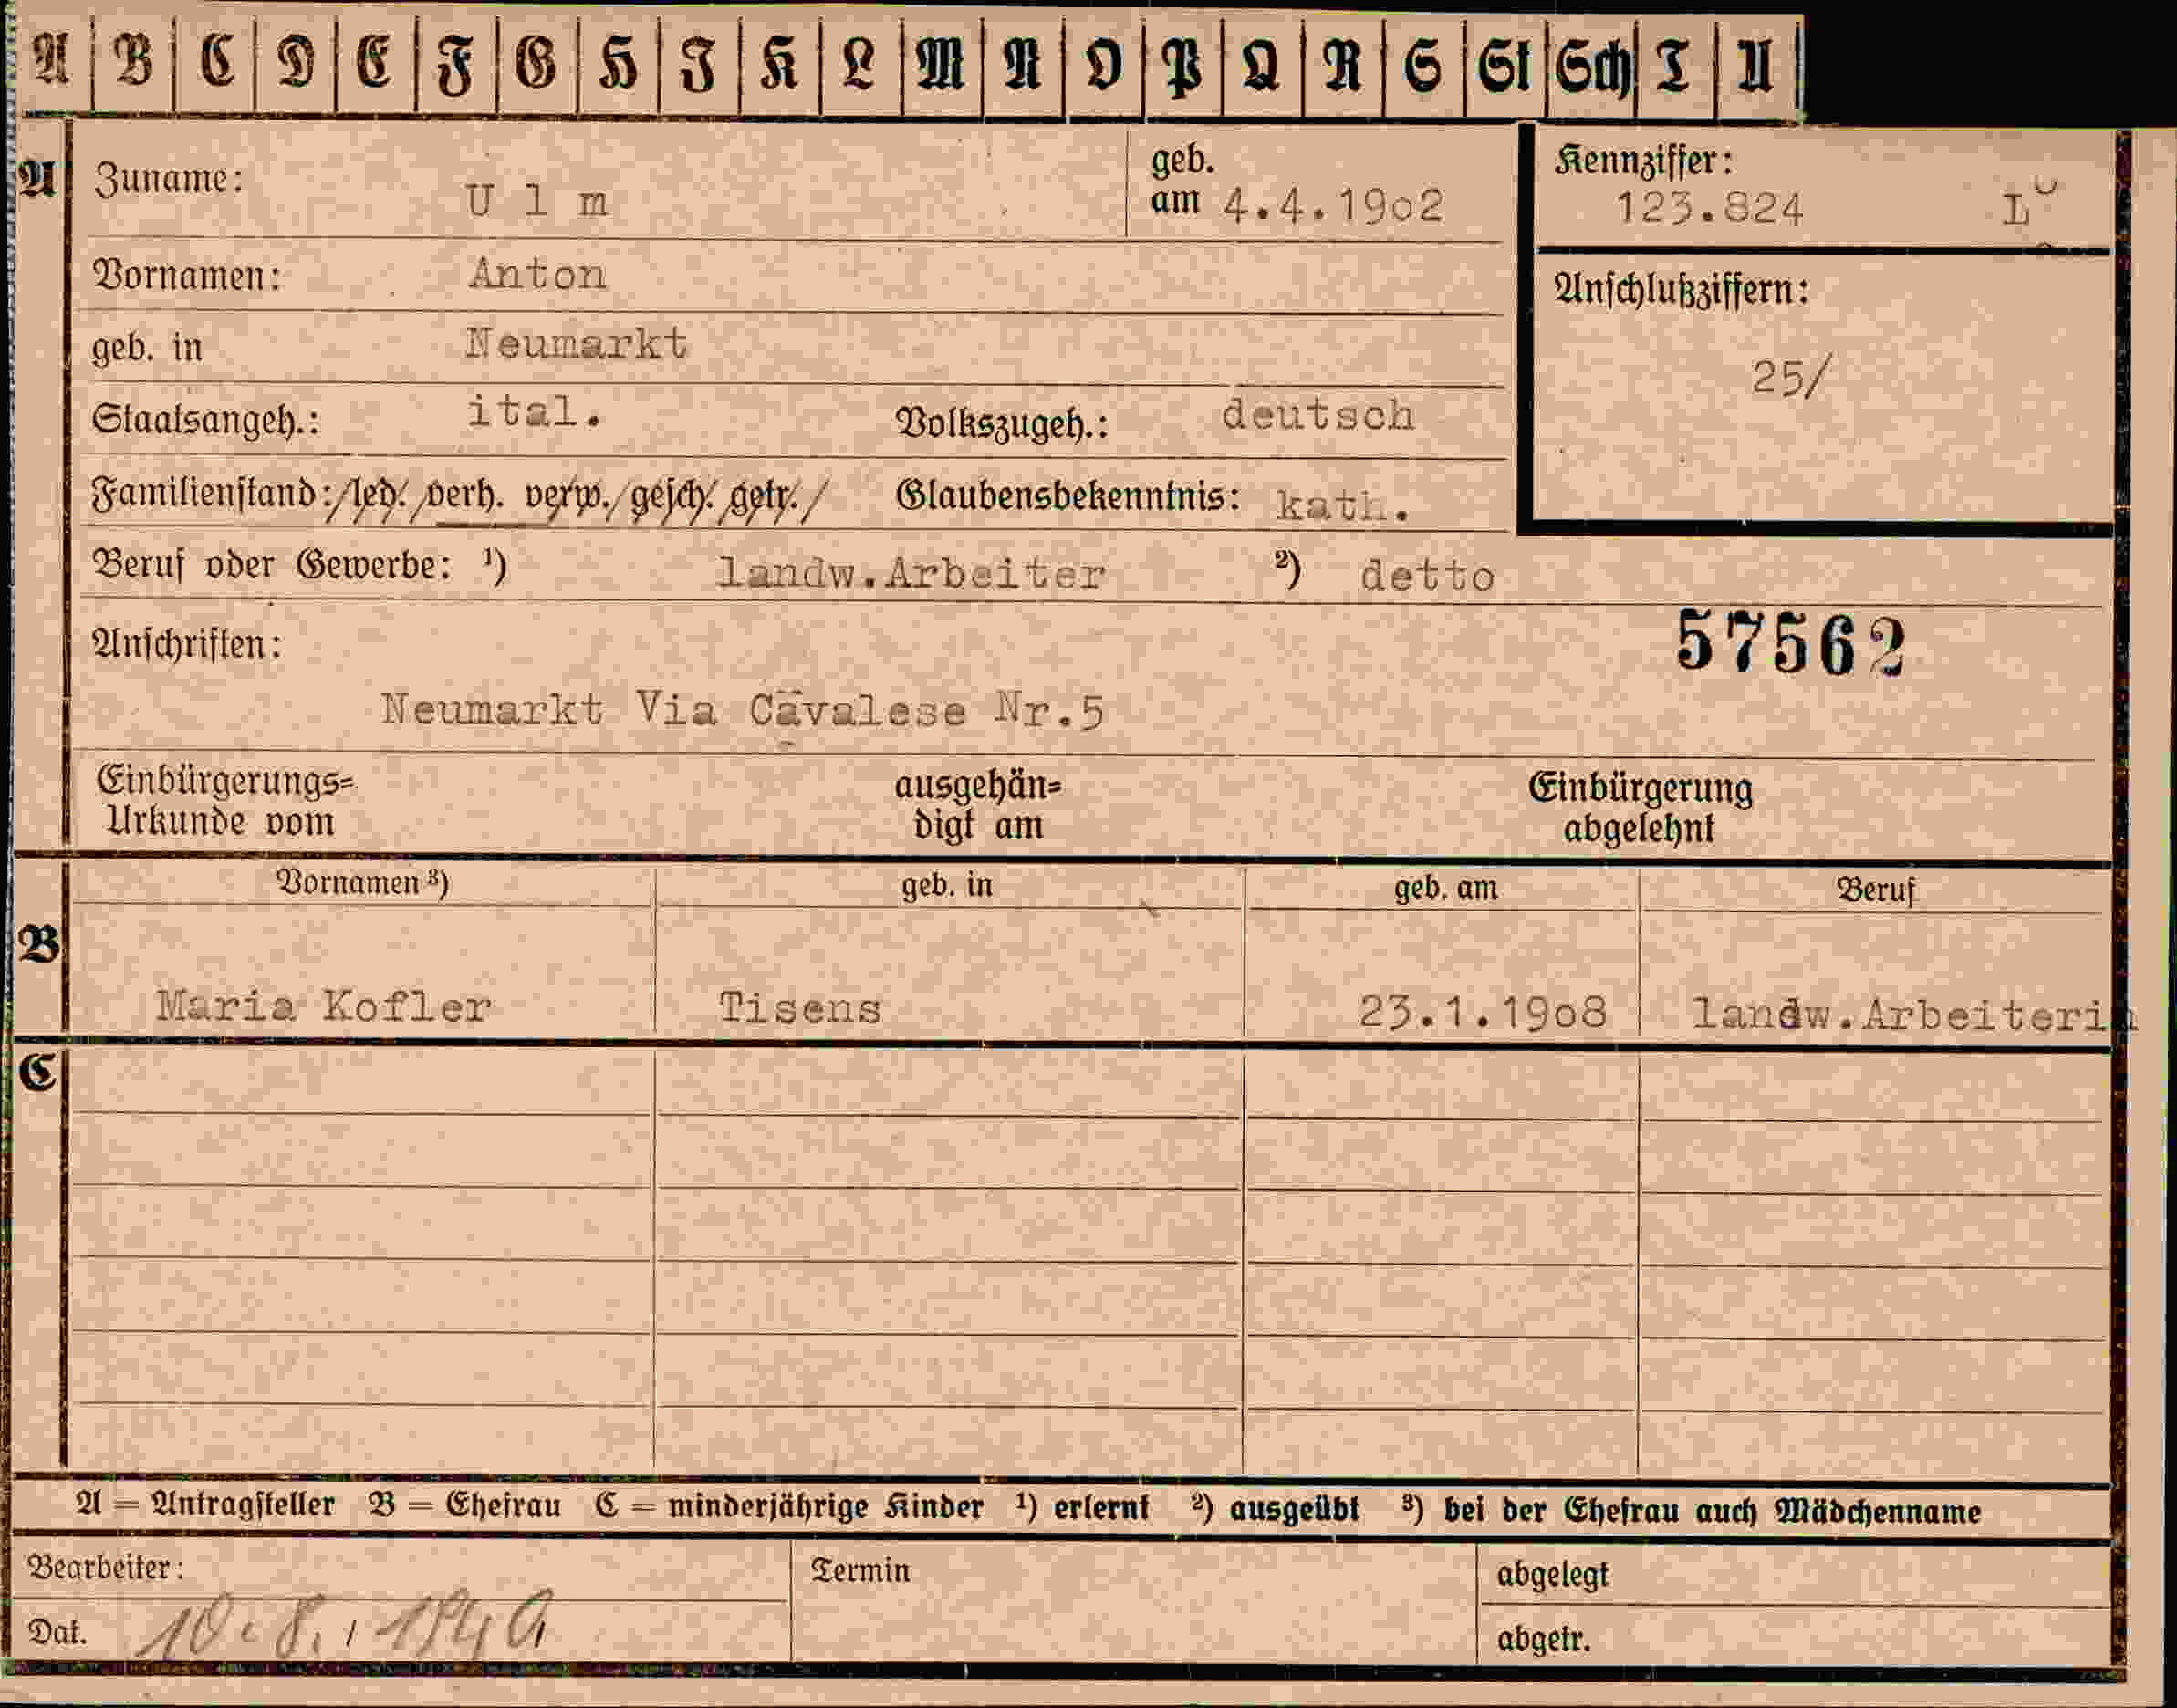 A B C D E F G H I K L M N O P Q R S St Sch T U
A Zuname: Ulm geb. am 4.4.19o2 Kennziffer: 123.824 L
Vornamen: Anton Anschlußziffern:
geb. in Neumarkt 25/
Staatsangeh.: ital. Volkszugeh.: deutsch
Familienstand: /led./ verh. verw./ gesch./ getr./ Glaubensbekenntnis: kath.
Beruf oder Gewerbe: ¹) landw.Arbeiter ²) detto
Anschriften: 57562
Neumarkt Via Cavalese Nr.5
Einbürgerungs= ausgehän= Einbürgerung
Urkunde vom digt am abgelehnt
B Vornamen ³) geb. in geb. am Beruf
Maria Kofler Tisens 23.1.19o8 landw.Arbeiterin
C
A = Antragsteller B = Ehefrau C = minderjährige Kinder ¹) erlernt ²) ausgeübt ³) bei der Ehefrau auch Mädchenname
Bearbeiter: Termin abgelegt
Dat. 10.8. abgetr.